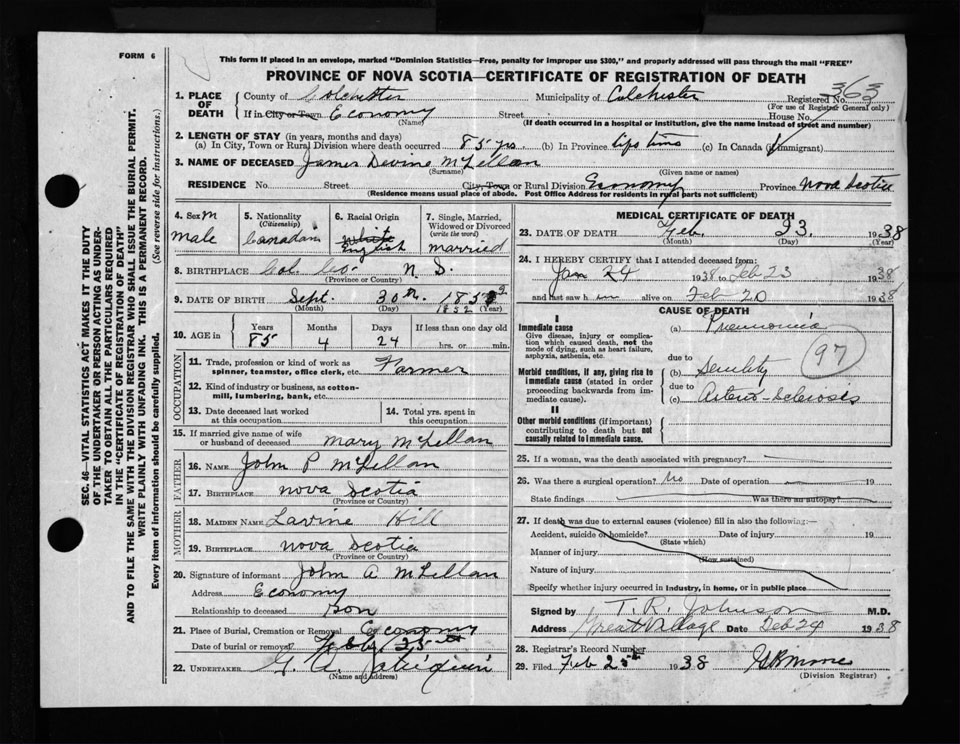 FORM 6
This form if placed in an envelope, marked "Dominion Statistics—Free, penalty for improper use $300," and properly addressed will pass through the mail "FREE"
PROVINCE OF NOVA SCOTIA—CERTIFICATE OF REGISTRATION OF DEATH
363
1. PLACE OF DEATH County of Colchester Municipality of Colchester Registered No.
(For use of Registrar General only)
If in City or Town Economy Street House No.
(Name) (If death occurred in a hospital or institution, give the name instead of street and number)
2. LENGTH OF STAY (in years, months and days)
(a) In City, Town or Rural Division where death occurred 85 yrs (b) In Province life time (c) In Canada (if immigrant)
3. NAME OF DECEASED James Devine McLellan
(Surname) (Given name or names)
RESIDENCE No. Street City, Town or Rural Division Economy Province Nova Scotia
(Residence means usual place of abode. Post Office Address for residents in rural parts not sufficient)
4. Sex M
male
5. Nationality
(Citizenship)
Canadian
6. Racial Origin
White
English
7. Single, Married, Widowed or Divorced
(write the word)
married
8. BIRTHPLACE Col. Co. N. S.
(Province or Country)
9. DATE OF BIRTH Sept. 30th 185
1852
(Month) (Day) (Year)
10. AGE in Years Months Days If less than one day old
85 4 24 hrs. or min.
OCCUPATION
11. Trade, profession or kind of work as spinner, teamster, office clerk, etc. Farmer
12. Kind of industry or business, as cotton-mill, lumbering, bank, etc.
13. Date deceased last worked at this occupation
14. Total yrs. spent in this occupation
15. If married give name of wife or husband of deceased Mary McLellan
FATHER
16. Name John P McLellan
17. Birthplace Nova Scotia
(Province or Country)
MOTHER
18. Maiden Name Lavine Hill
19. Birthplace Nova Scotia
(Province or Country)
20. Signature of informant John A McLellan
Address Economy
Relationship to deceased Son
21. Place of Burial, Cremation or Removal Economy
Date of burial or removal Feb 25th
22. Undertaker G. A.
(Name and address)
MEDICAL CERTIFICATE OF DEATH
23. DATE OF DEATH Feb. 23. 1938
(Month) (Day) (Year)
24. I HEREBY CERTIFY that I attended deceased from:
Jan 24 1938 to Feb 23 1938
and last saw him alive on Feb 20 1938
CAUSE OF DEATH
I
Immediate cause
Give disease, injury or complication which caused death, not the mode of dying, such as heart failure, asphyxia, asthenia, etc.
(a) Pneumonia
due to
97
Morbid conditions, if any, giving rise to immediate cause (stated in order proceeding backwards from immediate cause).
(b) Senility
due to
(c) Arterio-sclerosis
II
Other morbid conditions (if important) contributing to death but not causally related to immediate cause.
25. If a woman, was the death associated with pregnancy?
26. Was there a surgical operation? No Date of operation 19
State findings Was there an autopsy?
27. If death was due to external causes (violence) fill in also the following:—
Accident, suicide or homicide? Date of injury 19
(State which)
Manner of injury
(How sustained)
Nature of injury
Specify whether injury occurred in industry, in home, or in public place
Signed by T. R. Johnson M.D.
Address Great Village Date Feb 24 1938
28. Registrar's Record Number
29. Filed Feb 25th 1938
(Division Registrar)
SEC. 46—VITAL STATISTICS ACT MAKES IT THE DUTY
OF THE UNDERTAKER OR PERSON ACTING AS UNDER-
TAKER TO OBTAIN ALL THE PARTICULARS REQUIRED
IN THE "CERTIFICATE OF REGISTRATION OF DEATH"
AND TO FILE THE SAME WITH THE DIVISION REGISTRAR WHO SHALL ISSUE THE BURIAL PERMIT.
WRITE PLAINLY WITH UNFADING INK. THIS IS A PERMANENT RECORD.
Every item of information should be carefully supplied. (See reverse side for instructions.)